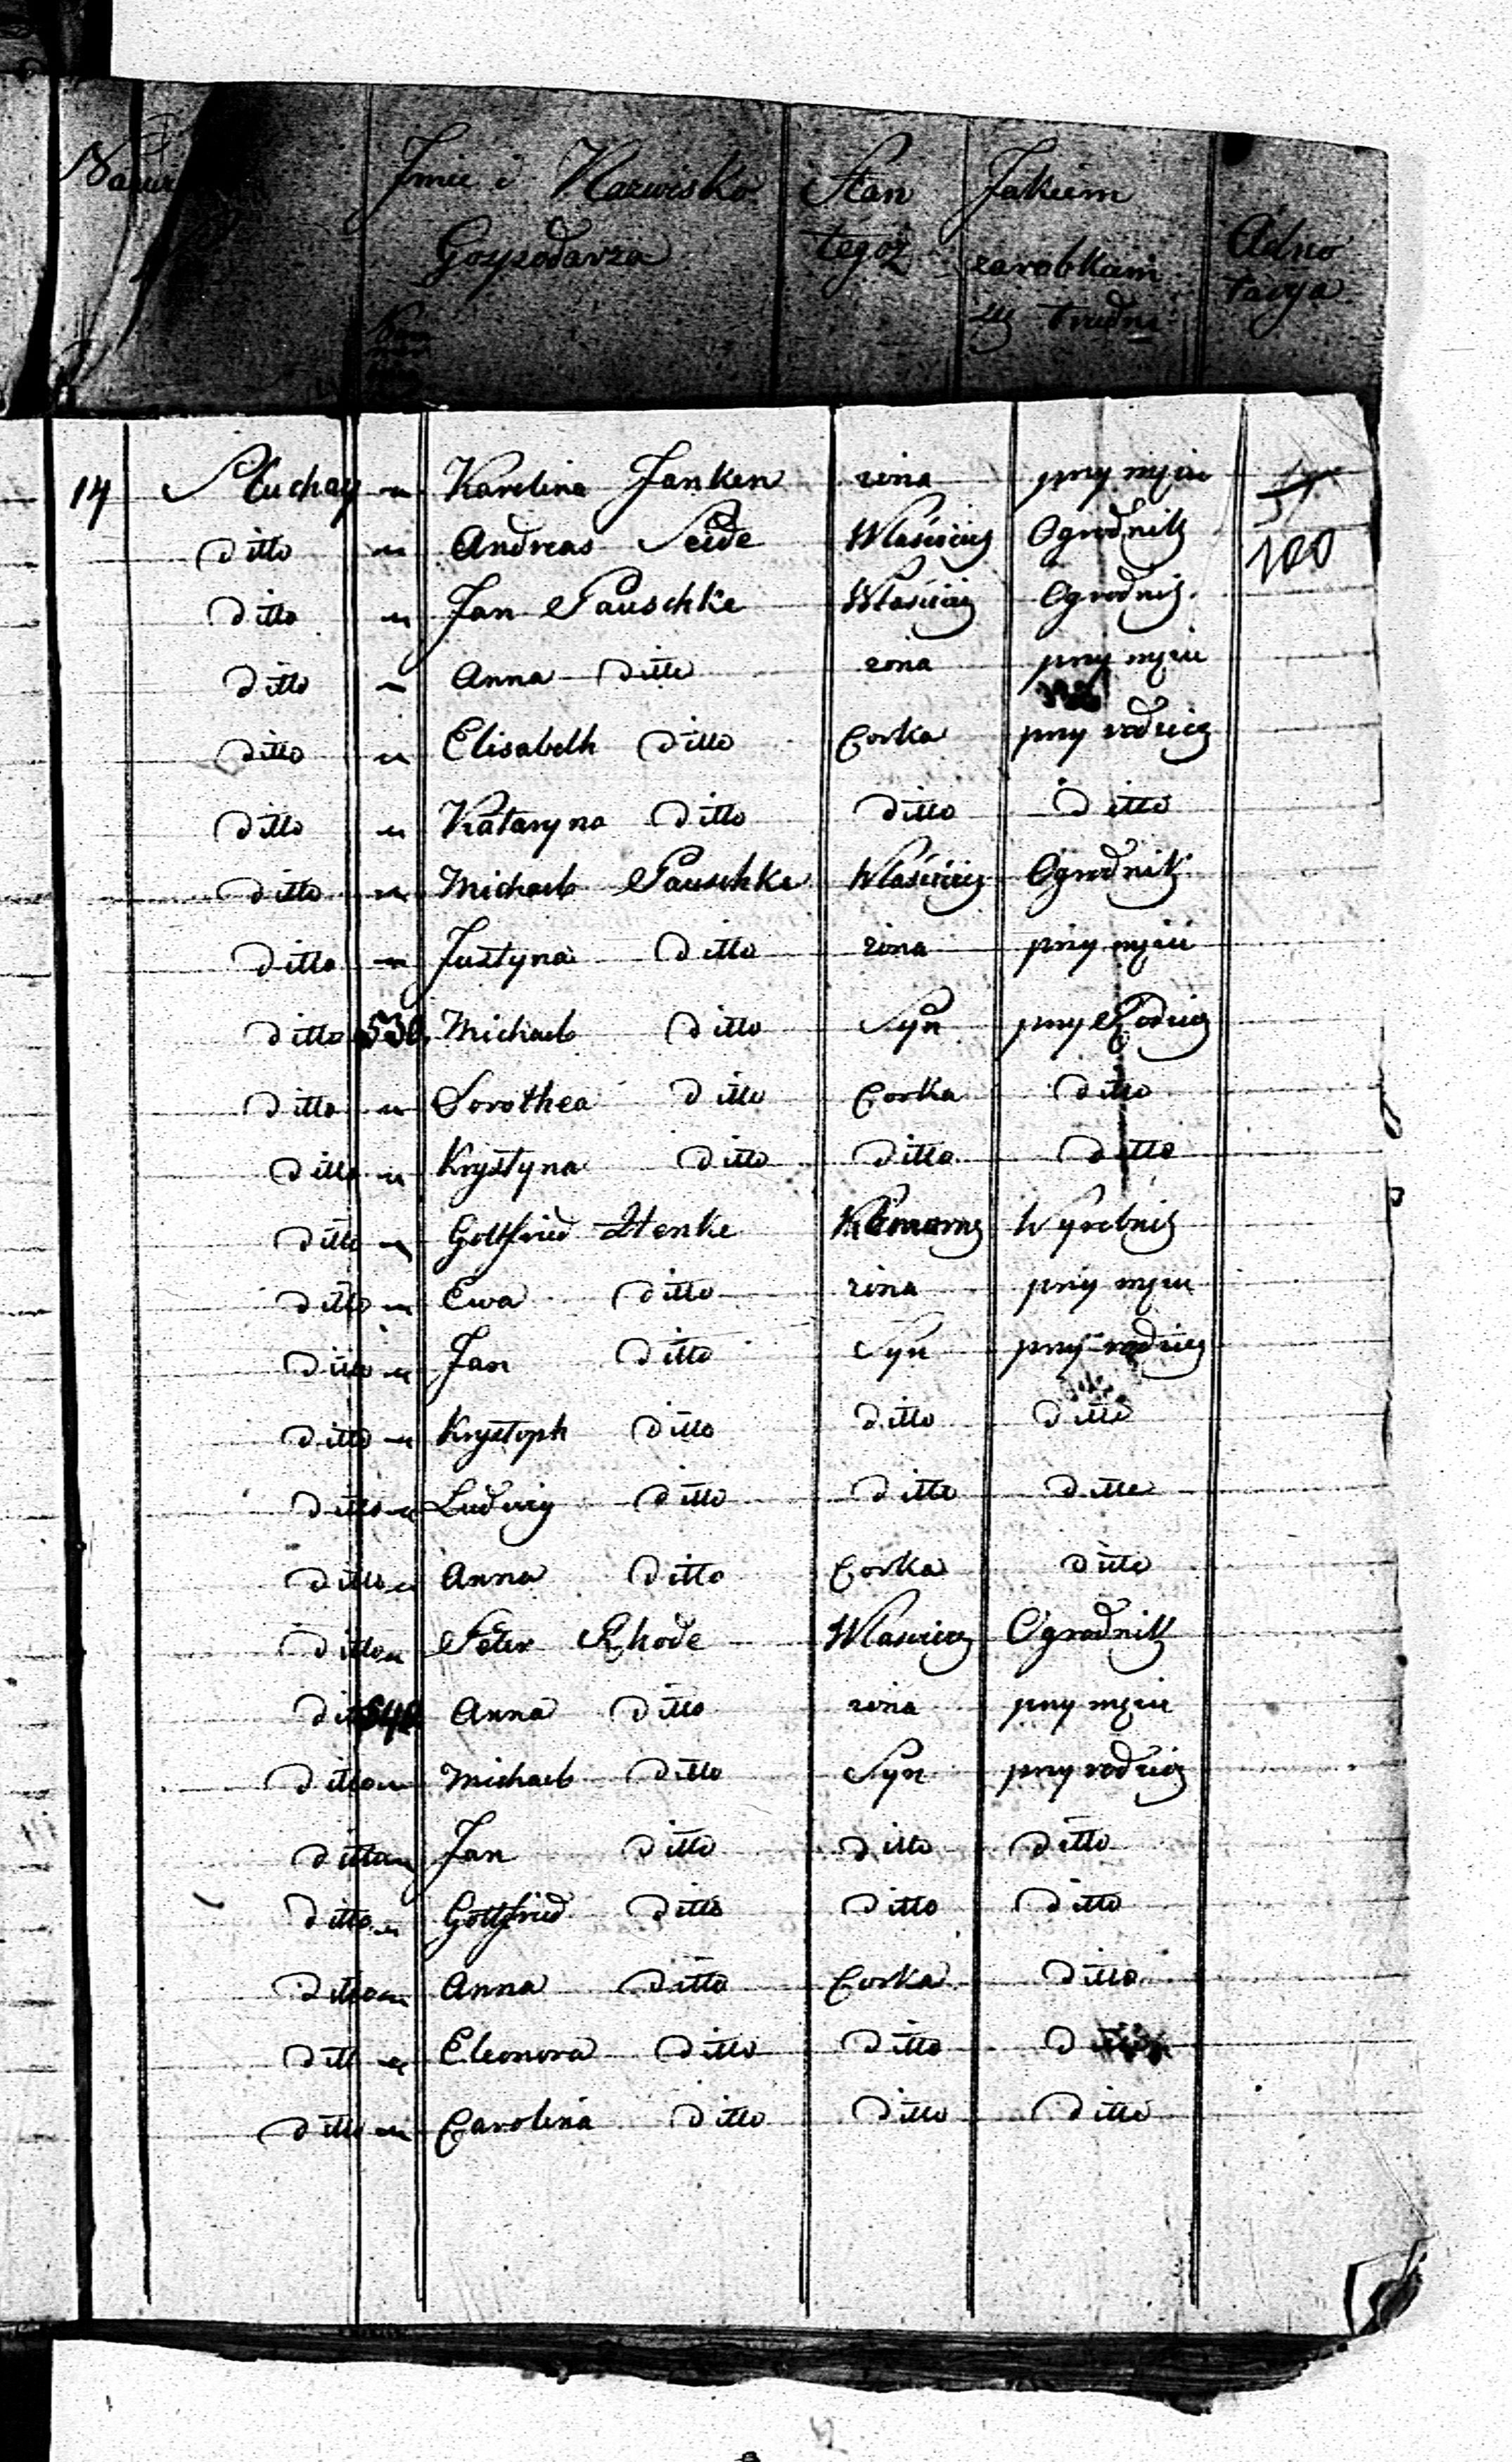 Imie i Nazwisko Gospodarza Stan tegoż Jakiem zarobkiem się trudni Adnotacya
14 Sluchay " Karolina Janken zona przy mężu
ditto " Andreas Seide Właściciel Ogrodnik 100
ditto " Jan Pauschke Właściciel Ogrodnik
ditto " Anna ditto zona przy mężu
ditto " Elisabeth ditto Corka przy rodzicz
ditto " Kataryna ditto ditto ditto
ditto " Michael Pauschke Właściciel Ogrodnik
ditto " Justyna ditto zona przy mężu
ditto 530 Michael ditto Syn przy Rodzicz
ditto " Dorothea ditto Corka ditto
ditto " Krystyna ditto ditto ditto
ditto " Gottfried Henke Komorny Wyrobnik
ditto " Ewa ditto zona przy mężu
ditto " Jan ditto Syn przy rodzicz
ditto " Krystoph ditto ditto ditto
ditto " Ludwig ditto ditto ditto
ditto " Anna ditto Corka ditto
ditto " Peter Rhode Wlasciciel Ogrodnik
ditto 540 Anna ditto zona przy mężu
ditto " Michael ditto Syn przy rodzicz
ditto " Jan ditto ditto ditto
ditto " Gottfried ditto ditto ditto
ditto " Anna ditto Corka ditto
ditto " Eleonora ditto ditto ditto
ditto " Carolina ditto ditto ditto